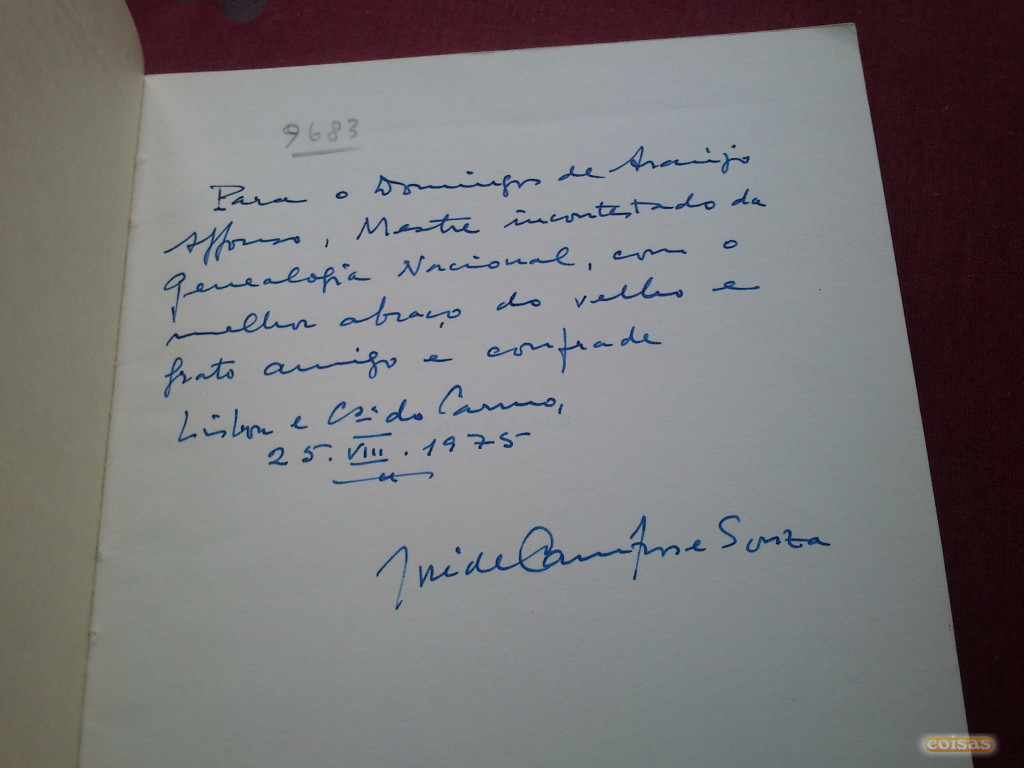 9683
Para o Domingos de Araújo
Affonso, Mestre incontestado da
Genealogia Nacional, com o
melhor abraço do velho e
grato amigo e confrade
Lisboa e Cç.ª do Carmo,
25.VIII.1975
José de Campos e Souza
coisas